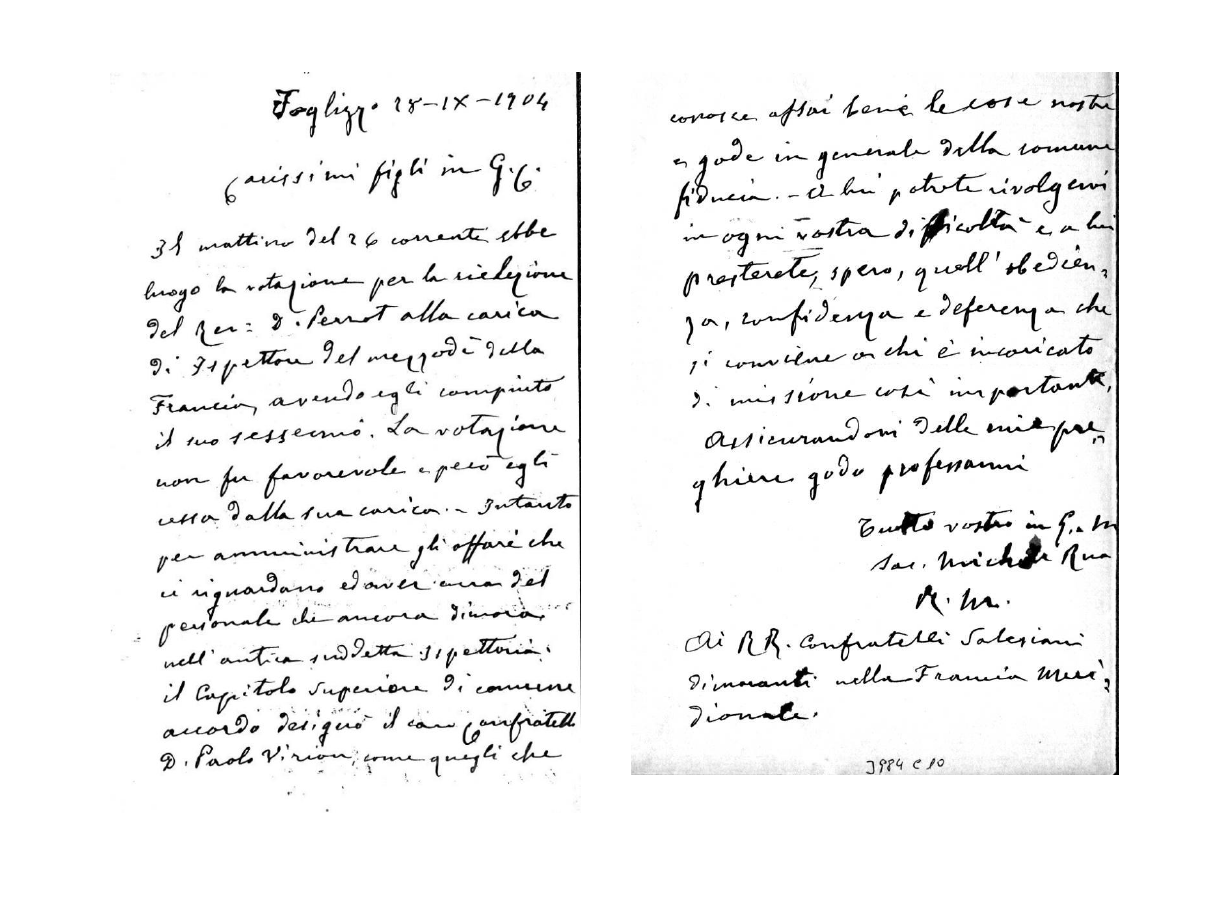 Foglizzo 28-IX-1904
Carissimi figli in G. C.
Il mattino del 26 corrente ebbe
luogo la votazione per la rielezione
del Rev: D. Perrot alla carica
di Ispettore del mezzodì della
Francia, avendo egli compiuto
il suo sessennio. La votazione
non fu favorevole e però egli
cessa dalla sua carica. - Intanto
per amministrare gli affari che
ci riguardano ed aver cura del
personale che ancora dimora
nell'antica suddetta Ispettoria
il Capitolo Superiore di comune
accordo designò il caro Confratello
D. Paolo Virion, come quegli che
conosce assai bene le cose nostre
e gode in generale della comune
fiducia. - A lui potrete rivolgervi
in ogni vostra difficoltà e a lui
presterete, spero, quell'obbedien-
za, confidenza e deferenza che
si conviene a chi è incaricato
di missione così importante.
Assicurandovi delle mie pre-
ghiere godo professarmi
Tutto vostro in G. e M
Sac. Michele Rua
R. M.
Ai RR. Confratelli Salesiani
dimoranti nella Francia Meri-
dionale.
3984 C 10